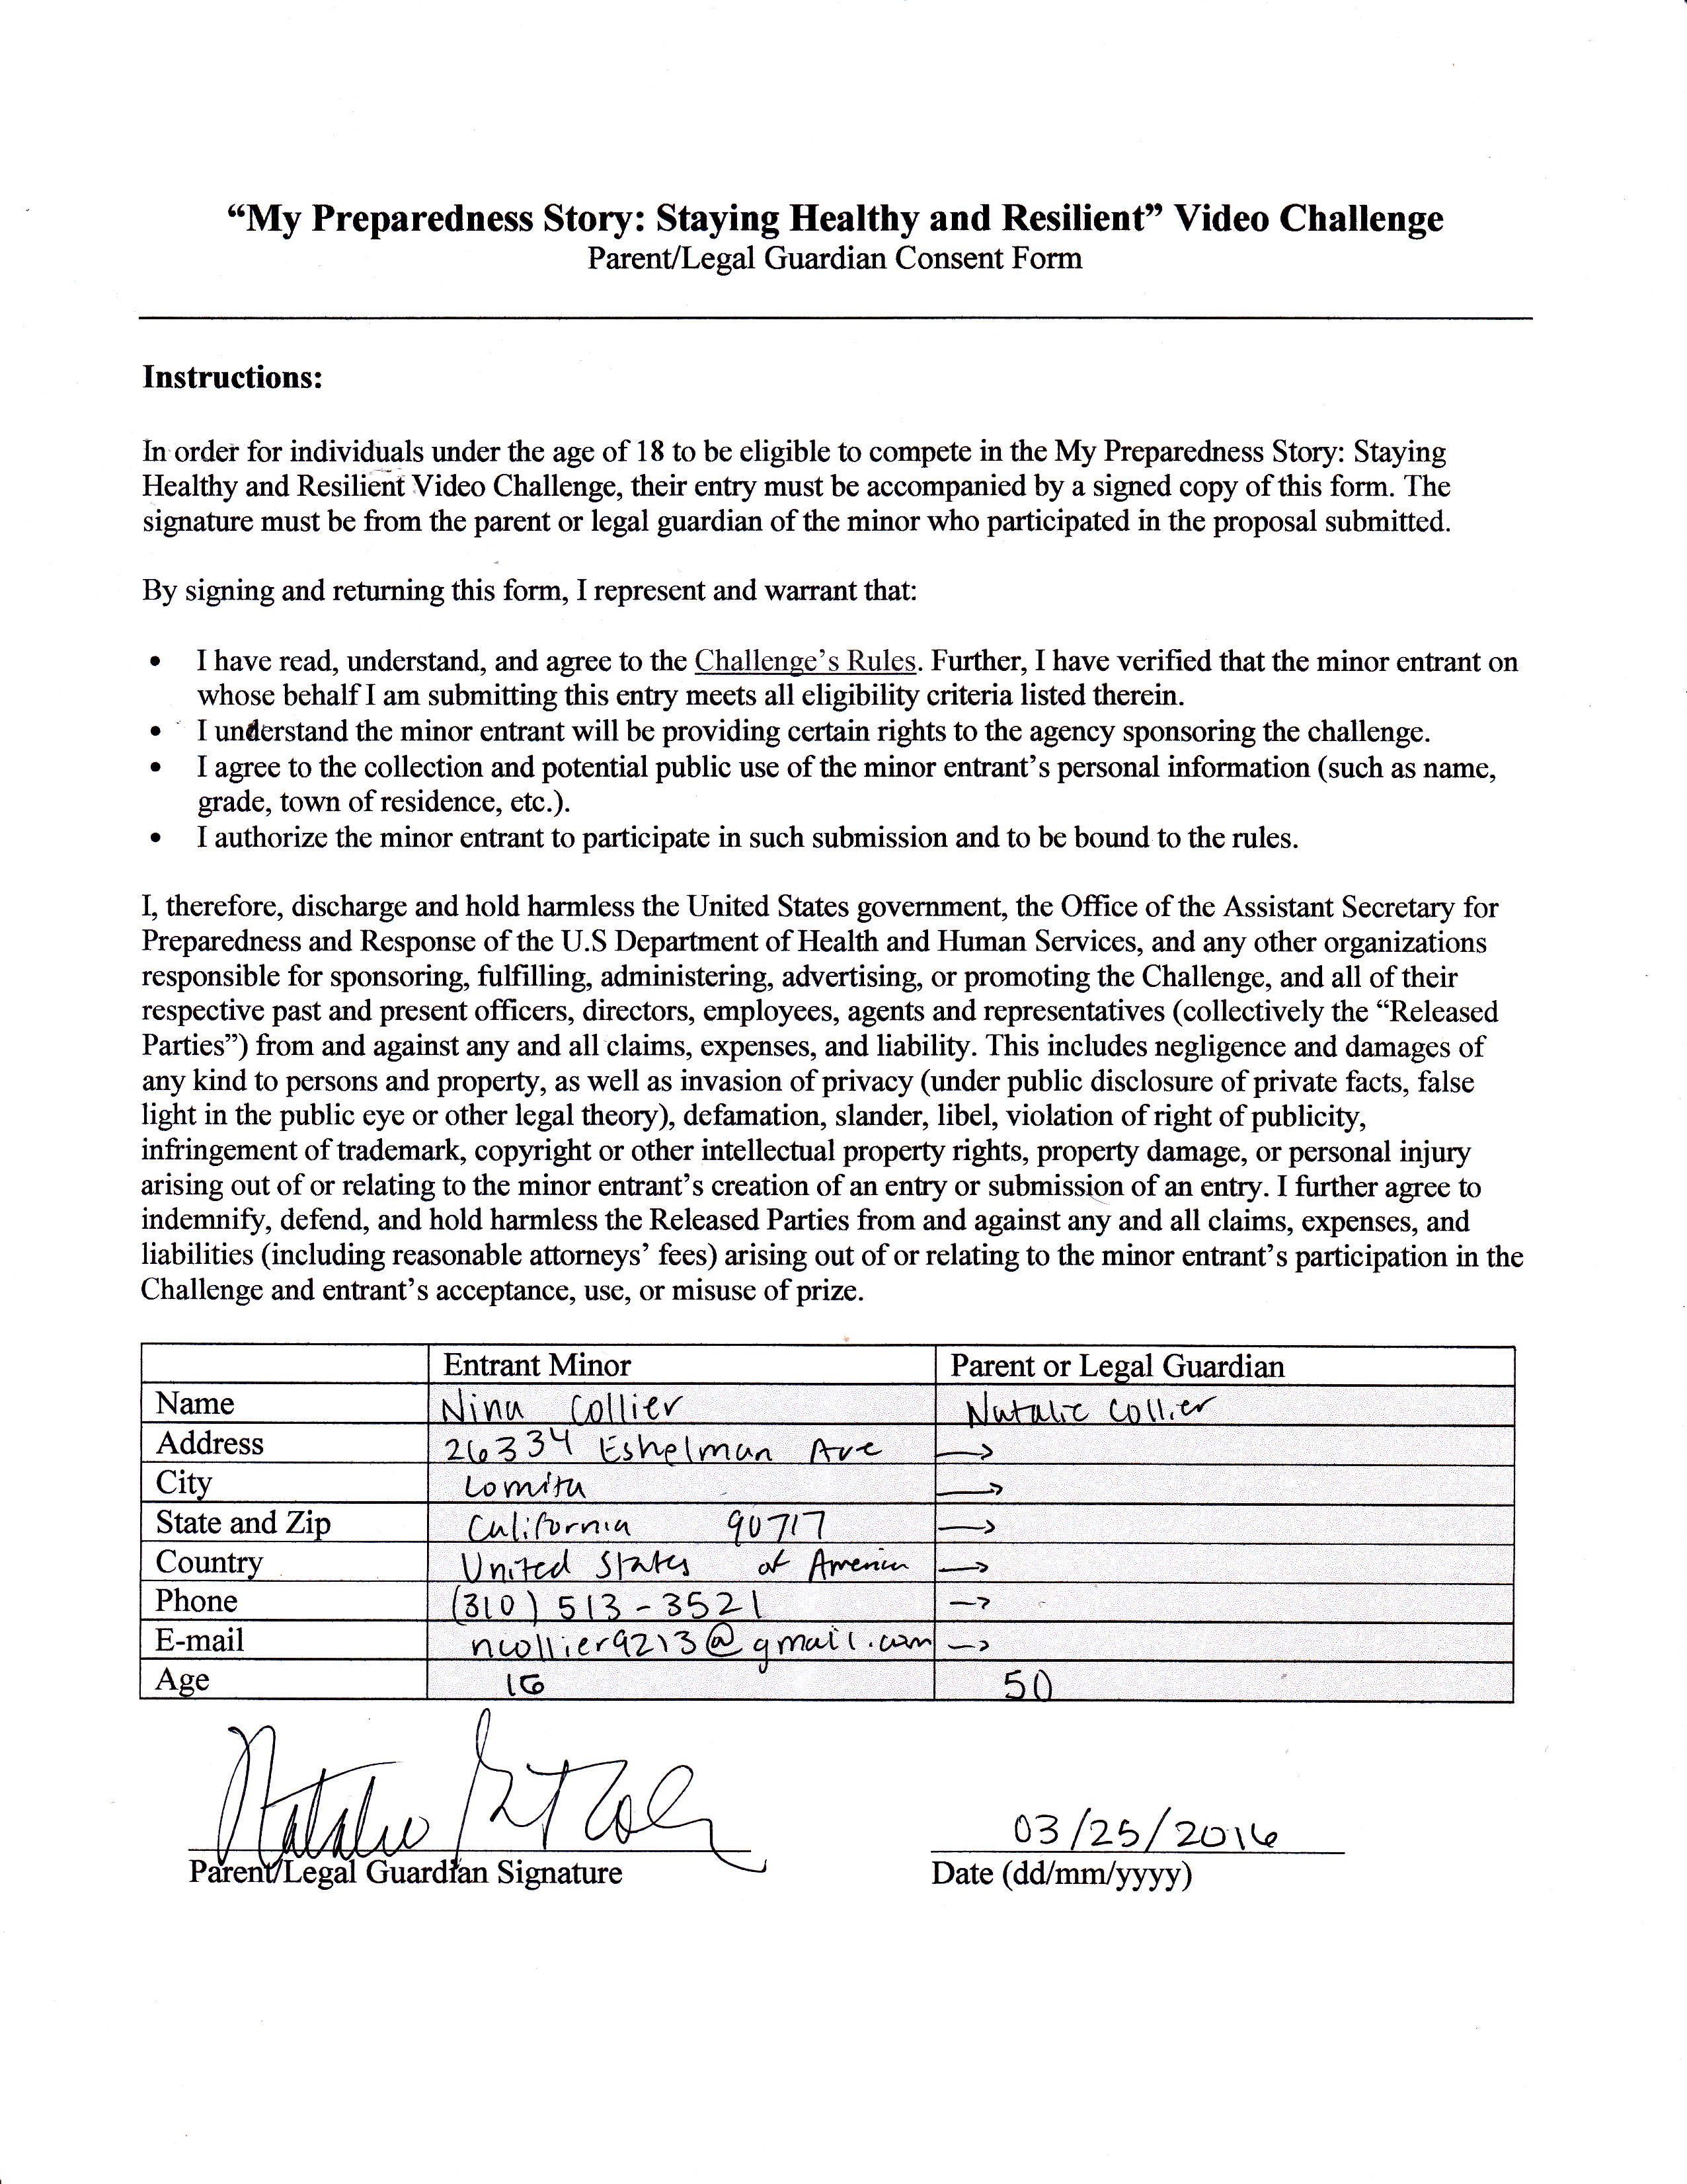 “My Preparedness Story: Staying Healthy and Resilient” Video Challenge
Parent/Legal Guardian Consent Form
Instructions:
In order for individuals under the age of 18 to be eligible to compete in the My Preparedness Story: Staying
Healthy and Resilient Video Challenge, their entry must be accompanied by a signed copy of this form. The
signature must be from the parent or legal guardian of the minor who participated in the proposal submitted.
By signing and returning this form, I represent and warrant that:
• I have read, understand, and agree to the Challenge’s Rules. Further, I have verified that the minor entrant on
whose behalf I am submitting this entry meets all eligibility criteria listed therein.
• I understand the minor entrant will be providing certain rights to the agency sponsoring the challenge.
• I agree to the collection and potential public use of the minor entrant’s personal information (such as name,
grade, town of residence, etc.).
• I authorize the minor entrant to participate in such submission and to be bound to the rules.
I, therefore, discharge and hold harmless the United States government, the Office of the Assistant Secretary for
Preparedness and Response of the U.S Department of Health and Human Services, and any other organizations
responsible for sponsoring, fulfilling, administering, advertising, or promoting the Challenge, and all of their
respective past and present officers, directors, employees, agents and representatives (collectively the “Released
Parties”) from and against any and all claims, expenses, and liability. This includes negligence and damages of
any kind to persons and property, as well as invasion of privacy (under public disclosure of private facts, false
light in the public eye or other legal theory), defamation, slander, libel, violation of right of publicity,
infringement of trademark, copyright or other intellectual property rights, property damage, or personal injury
arising out of or relating to the minor entrant’s creation of an entry or submission of an entry. I further agree to
indemnify, defend, and hold harmless the Released Parties from and against any and all claims, expenses, and
liabilities (including reasonable attorneys’ fees) arising out of or relating to the minor entrant’s participation in the
Challenge and entrant’s acceptance, use, or misuse of prize.
Entrant Minor Parent or Legal Guardian
Name Nina Collier Natalie Collier
Address 26334 Eshelman Ave →
City Lomita →
State and Zip California 90717 →
Country United States of America →
Phone (310) 513-3521 →
E-mail ncollier9213@gmail.com →
Age 16 50
Natalie
03/25/2016
Parent/Legal Guardian Signature Date (dd/mm/yyyy)